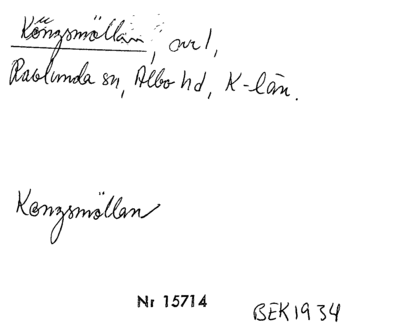 Kongsmöllan, avs.,
Ravlunda sn, Albo hd, K-län.
Kongsmöllan
Nr 15714
BEK 1934